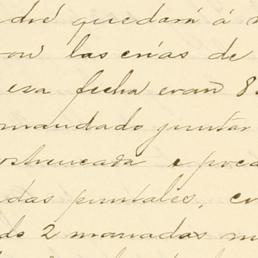 dré quedará á
ron las crias de
esa fecha eran 8
mandado juntar
das puntales, co
do 2 manadas m